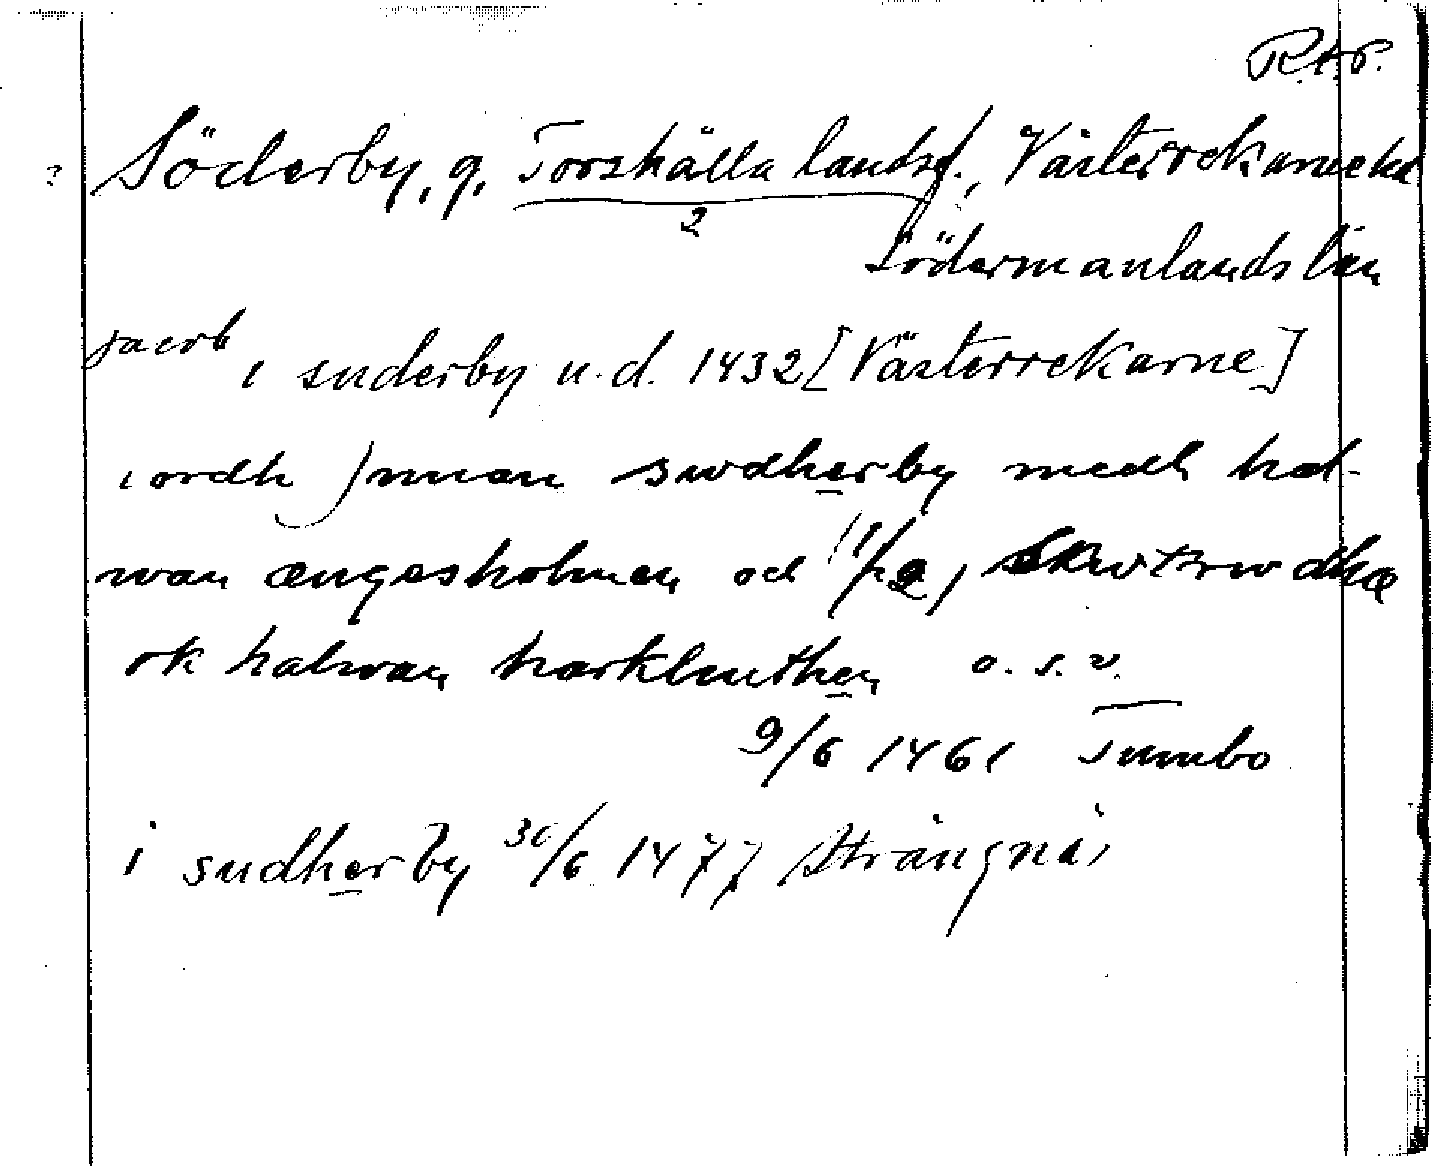 R.A.P.
? Söderby, g. Torshälla landsf., Västerrekarne hd
2
Södermanlands län
jacob i suderby u.d. 1432 [Västerrekarne]
iordh j mian swdherby medh hal-
wan ængesholmen och j
ok halwan harkluthen o.s.v.
9/6 1461 Tumbo
i sudherby 30/6 1477 Strängnäs